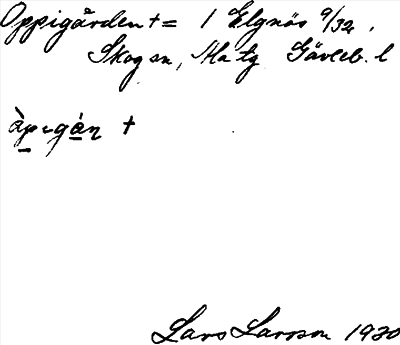 Oppigården † = 1 Elgnäs 9/32,
Skog sn, Ala tg Gävleb. l
àpigán †
Lars Larsson 1930